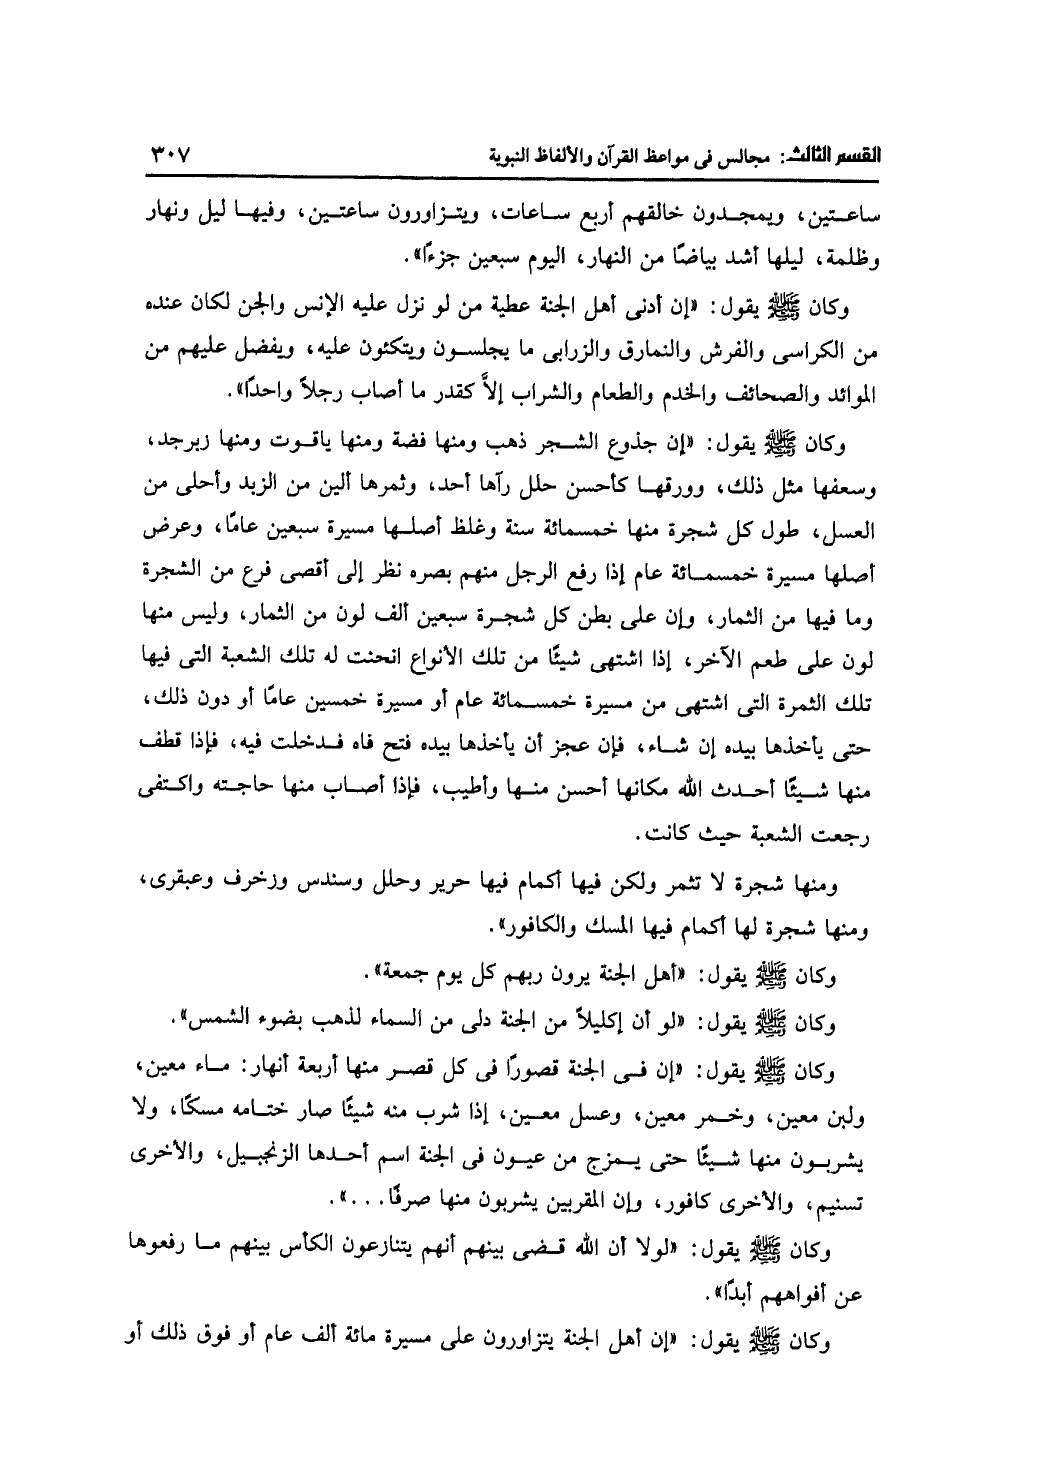 القسم الثالث: مجالس فى مواعظ القرآن والألفاظ النبوية ٣٠٧
ساعتين، ويمجدون خالقهم أربع ساعات، ويتزاورون ساعتين، وفيها ليل ونهار
وظلمة، ليلها أشد بياضًا من النهار، اليوم سبعين جزءًا».
وكان ﷺ يقول: «إن أدنى أهل الجنة عطية من لو نزل عليه الإنس والجن لكان عنده
من الكراسى والفرش والنمارق والزرابى ما يجلسون ويتكئون عليه، ويفضل عليهم من
الموائد والصحائف والخدم والطعام والشراب إلاَّ كقدر ما أصاب رجلاً واحدًا».
وكان ﷺ يقول: «إن جذوع الشجر ذهب ومنها فضة ومنها ياقوت ومنها زبرجد،
وسعفها مثل ذلك، وورقها كأحسن حلل رآها أحد، وثمرها ألين من الزبد وأحلى من
العسل، طول كل شجرة منها خمسمائة سنة وغلظ أصلها مسيرة سبعين عامًا، وعرض
أصلها مسيرة خمسمائة عام إذا رفع الرجل منهم بصره نظر إلى أقصى فرع من الشجرة
وما فيها من الثمار، وإن على بطن كل شجرة سبعين ألف لون من الثمار، وليس منها
لون على طعم الآخر، إذا اشتهى شيئًا من تلك الأنواع انحنت له تلك الشعبة التى فيها
تلك الثمرة التى اشتهى من مسيرة خمسمائة عام أو مسيرة خمسين عامًا أو دون ذلك،
حتى يأخذها بيده إن شاء، فإن عجز أن يأخذها بيده فتح فاه فدخلت فيه، فإذا قطف
منها شيئًا أحدث الله مكانها أحسن منها وأطيب، فإذا أصاب منها حاجته واكتفى
رجعت الشعبة حيث كانت.
ومنها شجرة لا تثمر ولكن فيها أكمام فيها حرير وحلل وسندس وزخرف وعبقرى،
ومنها شجرة لها أكمام فيها المسك والكافور».
وكان ﷺ يقول: «أهل الجنة يرون ربهم كل يوم جمعة».
وكان ﷺ يقول: «لو أن إكليلاً من الجنة دلى من السماء لذهب بضوء الشمس».
وكان ﷺ يقول: «إن فى الجنة قصورًا فى كل قصر منها أربعة أنهار: ماء معين،
ولبن معين، وخمر معين، وعسل معين، إذا شرب منه شيئًا صار ختامه مسكًا، ولا
يشربون منها شيئًا حتى يمزج من عيون فى الجنة اسم أحدها الزنجبيل، والأخرى
تسنيم، والأخرى كافور، وإن المقربين يشربون منها صرفًا...».
وكان ﷺ يقول: «لولا أن الله قضى بينهم أنهم يتنازعون الكأس بينهم ما رفعوها
عن أفواههم أبدًا».
وكان ﷺ يقول: «إن أهل الجنة يتزاورون على مسيرة مائة ألف عام أو فوق ذلك أو